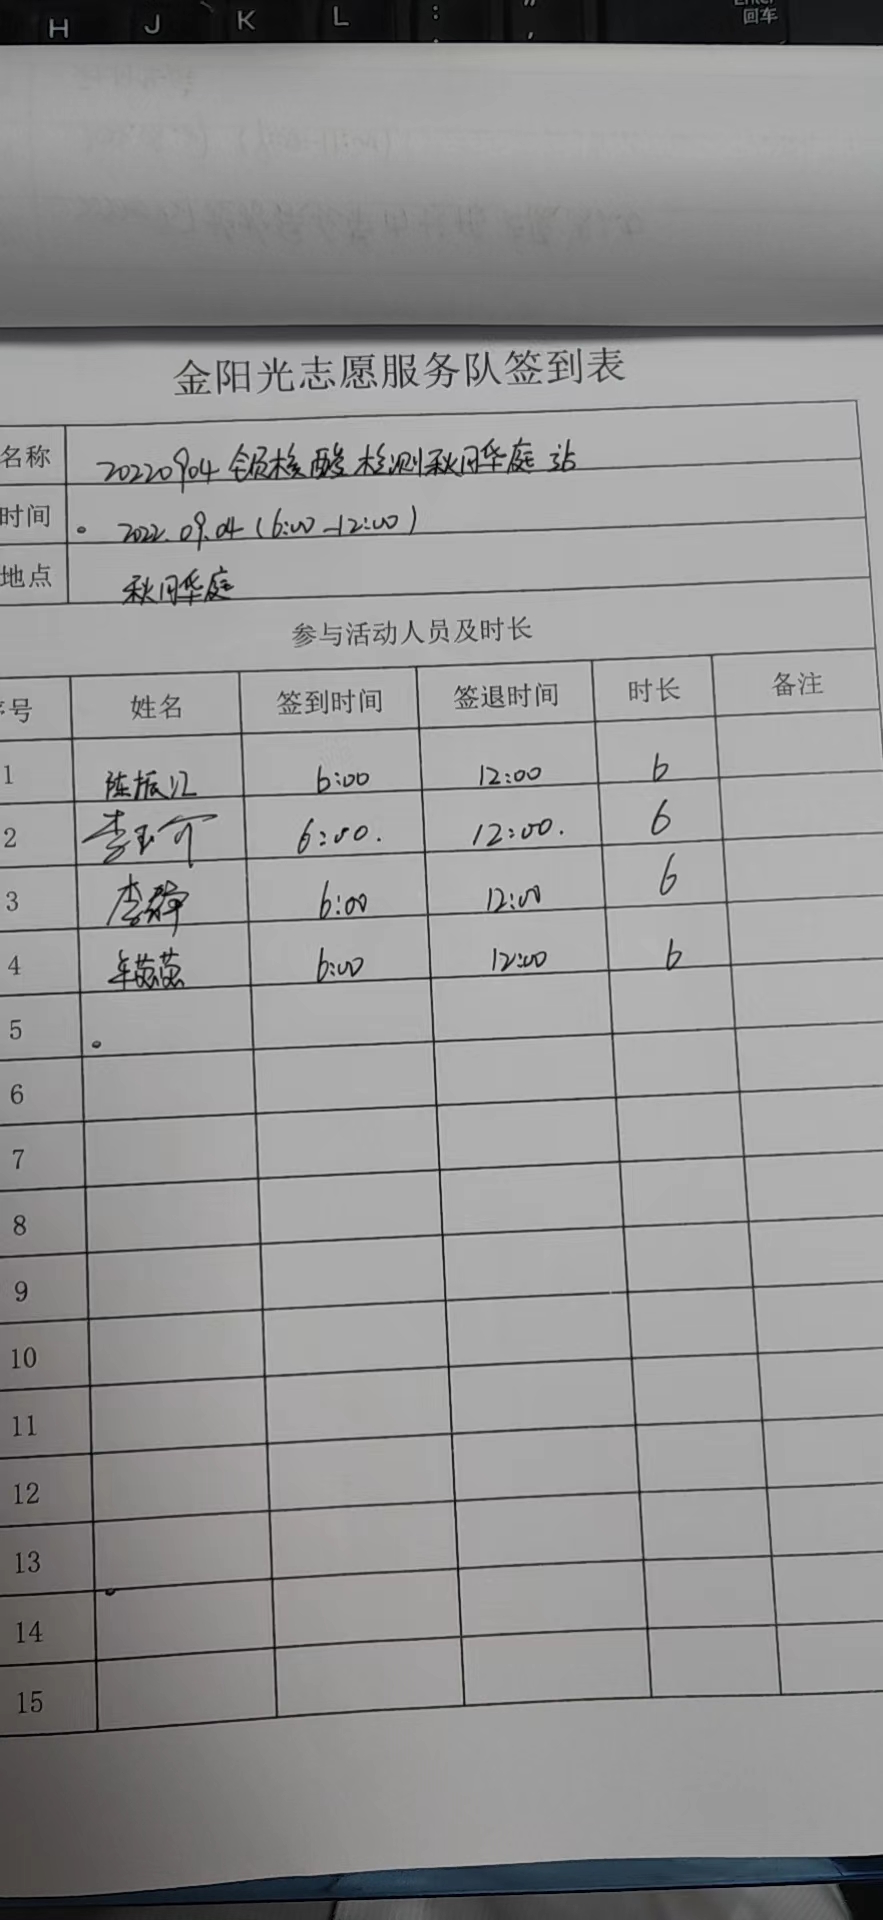 H J K L : " Enter
; ' 回车
金阳光志愿服务队签到表
名称 20220904全员核酸检测秋月华庭站
时间 2022.09.04(6:00-12:00)
地点 秋月华庭
参与活动人员及时长
序号 姓名 签到时间 签退时间 时长 备注
1 陈振江 6:00 12:00 6
2 李玉介 6:00. 12:00. 6
3 李静 6:00 12:00 6
4 牟茵茵 6:00 12:00 6
5
6
7
8
9
10
11
12
13
14
15